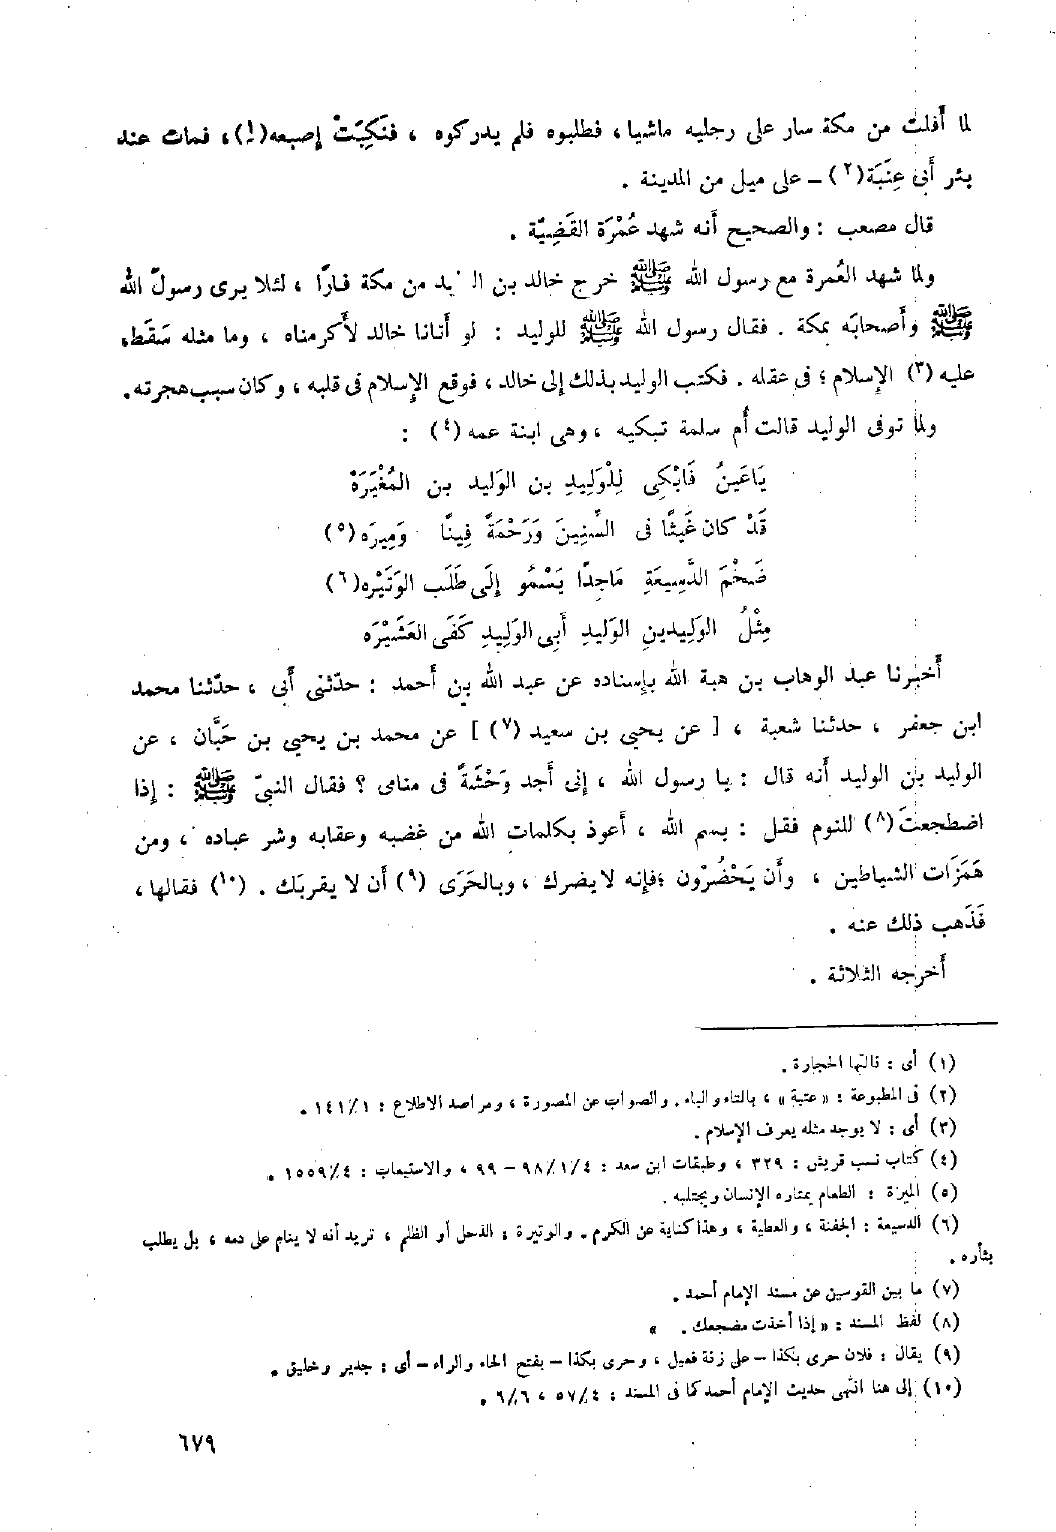 لما أفلت من مكة سار على رجليه ماشيا ، فطلبوه فلم يدركوه ، فَنَكِبَتْ إصبعه(١)، فمات عند
بئر أبى عِنَبَة(٢) – على ميل من المدينة .
قال مصعب : والصحيح أنه شهد عُمْرَة القَضِيّة .
ولما شهد العُمرة مع رسول الله ﷺ خرج خالد بن الـ ـيد من مكة فارًا ، لئلا يرى رسولَ الله
ﷺ وأصحابَه بمكة . فقال رسول الله ﷺ للوليد : لو أتانا خالد لأكرمناه ، وما مثله سَقَط،
عليه (٣) الإسلام ؛ فى عقله . فكتب الوليد بذلك إلى خالد ، فوقع الإسلام فى قلبه ، وكان سبب هجرته.
ولما توفى الوليد قالت أُم سلمة تبكيه ، وهى ابنة عمه (٤) :
يَاعَينُ فَابْكِى لِلْوَلِيدِ بن الوَليد بن المُغْيَرَهْ
قَدْ كان غَيثًا فى السِّنِينَ وَرَحْمَةً فِينًا وَمِيرَه (٥)
ضَخْمَ الدَّسِيعَةِ مَاجِدًا يَسْمُو إلَى طَلَب الوَتَيْره(٦)
مِثْلُ الوَلِيدينِ الوَليدِ أَبِى الوَلِيدِ كَفَى العَشَيْرَه
أَخبرنا عبد الوهاب بن هبة الله بإسناده عن عبد الله بن أحمد : حدّثنى أَبى ، حدّثنا محمد
ابن جعفر ، حدثنا شعبة ، [ عن يحيى بن سعيد (٧) ] عن محمد بن يحيى بن حَبَّان ، عن
الوليد بن الوليد أنه قال : يا رسول الله ، إنى أجد وَحْشَةً فى منامى ؟ فقال النبىّ ﷺ : إذا
اضطجعتَ(٨) للنوم فقل : بسم الله ، أَعوذ بكلمات الله من غضبه وعقابه وشر عباده ، ومن
هَمَزَات الشياطين ، وأَن يَحْضُرْون ؛فإنه لا يضرك ، وبالحَرَى (٩) أن لا يقربَك . (١٠) فقالها ،
فَذَهب ذلك عنه .
أَخرجه الثلاثة .
(١) أى : نالتها الحجارة .
(٢) فى المطبوعة : « عتبة » ، بالتاء والباء . والصواب عن المصورة ، ومراصد الاطلاع : ١٤١/١ .
(٣) أى : لا يوجد مثله يعرف الإسلام .
(٤) كتاب نسب قريش : ٣٢٩ ، وطبقات ابن سعد : ٩٨/١/٤ – ٩٩ ، والاستيعاب : ١٥٥٩/٤ .
(٥) الميرة : الطعام يمتاره الإنسان ويجتلبه .
(٦) الدسيعة : الجفنة ، والعطية ، وهذا كناية عن الكرم . والوتيرة : الذحل أو الظلم ، تريد أنه لا ينام على دمه ، بل يطلب
بثأره .
(٧) ما بين القوسين عن مسند الإمام أحمد .
(٨) لفظ المسند : « إذا أخذت مضجعك . »
(٩) يقال : فلان حرى بكذا – على زنة فعيل ، وحرى بكذا – بفتح الحاء والراء – أى : جدير وخليق .
(١٠) إلى هنا انتهى حديث الإمام أحمد كما فى المسند : ٥٧/٤ ، ٦/٦ .
٦٧٩